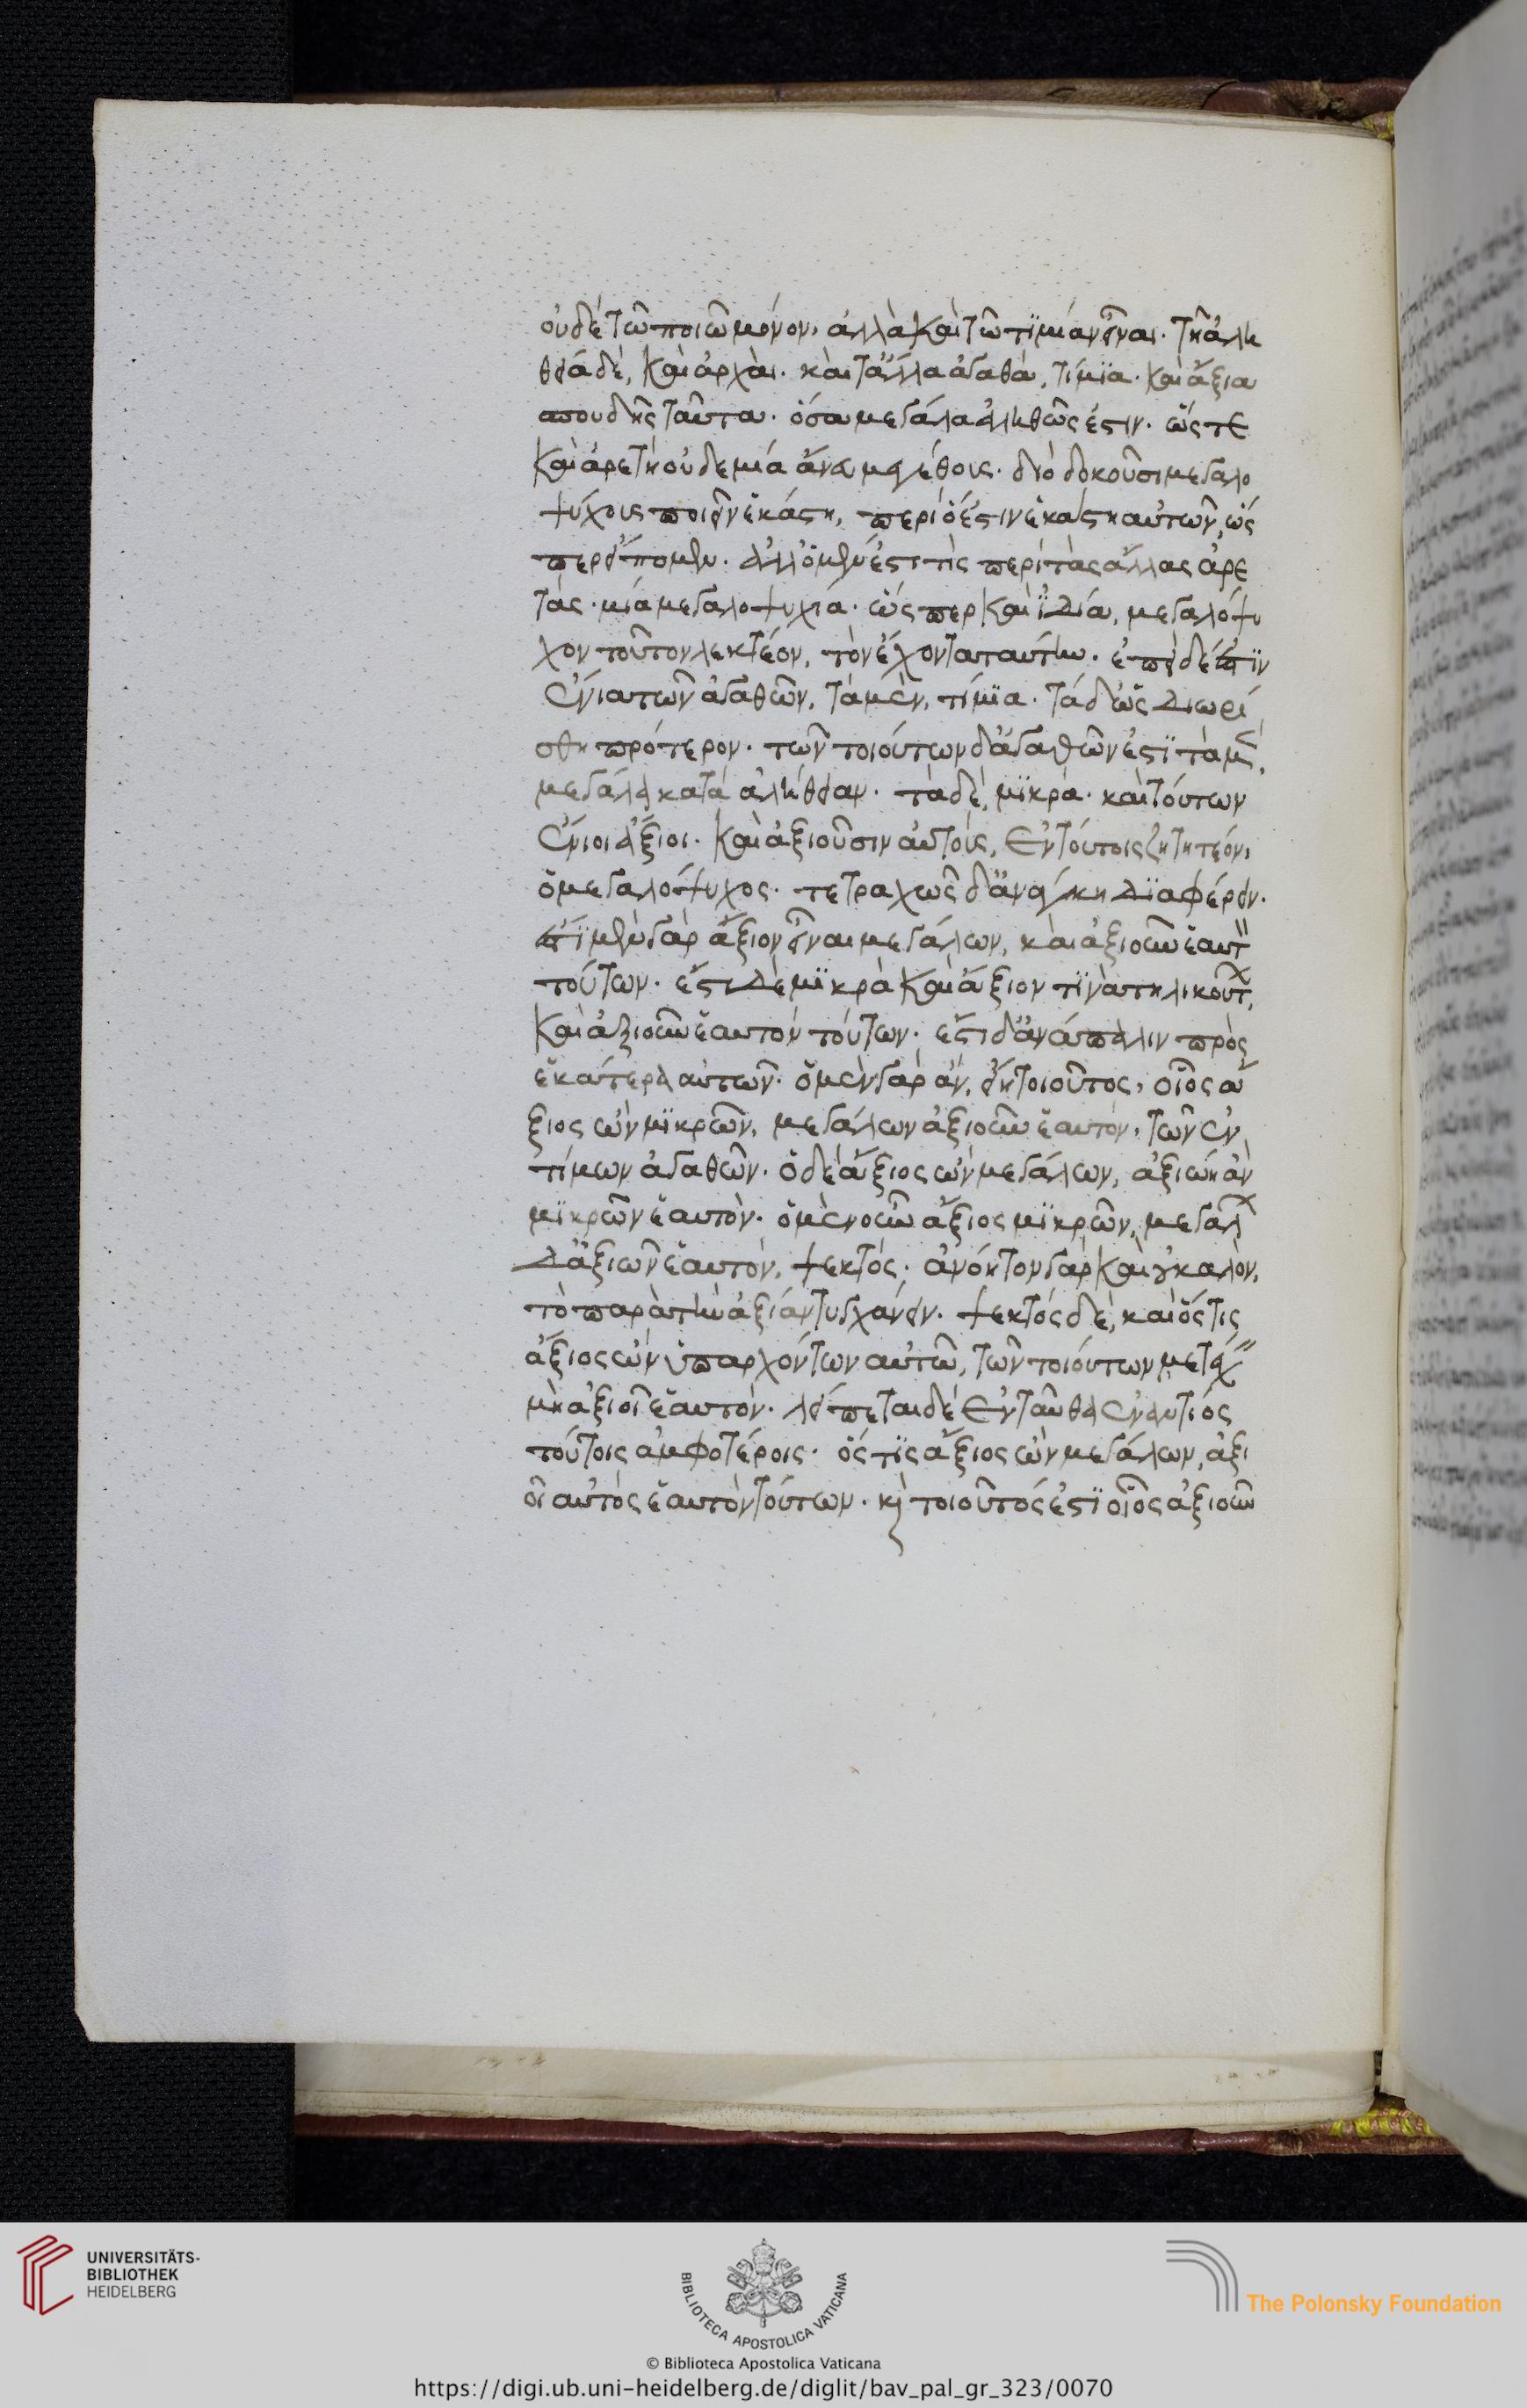 οὐδὲ τῶ ποιῶ μόνον, ἀλλὰ καὶ τῶ τϊμίαν εἶναι. τῆ ἀλη
θεία δὲ, καὶ ἀρχαὶ. καὶ τἄλλα ἀγαθὰ, τίμϊα. καὶ ἄξια
σπουδῆς ταῦτα. ὅσα μεγάλα ἀληθῶς ἐστιν. ὥστε
καὶ ἀρετὴ οὐδεμία ἄνευ μεγέθους. διὸ δοκοῦσι μεγαλο
ψύχους ποιεῖν ἑκάστη, περὶ ὅ ἐστιν ἑκάστη αὐτῶν, ὥς
περ εἴπομεν. ἀλλ' ὅμως ἔστι τὶς περὶ τὰς ἄλλας ἀρε
τὰς. μία μεγαλοψυχία. ὥς περ καὶ ϊδία, μεγαλόψυ
χον τοῦτον λεκτέον, τὸν ἔχοντα ταύτην. ἐπεὶ δέ ἐστϊν
ἔνια τῶν ἀγαθῶν, τὰ μὲν, τίμϊα. τὰ δ' ὡς διωρί
σθη πρότερον. τῶν τοιούτων δ' ἀγαθῶν ἐστϊ τὰ μὲν,
μεγάλα κατὰ ἀλήθειαν. τὰ δὲ, μϊκρὰ. καὶ τούτων
ἔνιοι ἄξιοι. καὶ ἀξιοῦσιν αὑτοὺς, ἐν τούτοις ζητητέον,
ὁ μεγαλόψυχος. τετραχῶς δ' ἀνάγκη δϊαφέρειν.
ἔστϊ μὲν γὰρ ἄξιον εἶναι μεγάλων, καὶ ἀξιοῦν ἑαυτ
τούτων. ἔστι δὲ μϊκρὰ καὶ ἄξιον τϊνὰ τηλικούτ,
καὶ ἀξιοῦν ἑαυτὸν τούτων. ἔστι δ' ἀνάπαλιν πρὸς
ἑκάτερα αὐτῶν. ὁ μὲν γὰρ ἂν, εἴη τοιοῦτος, οἷος ἄ
ξιος ὢν μϊκρῶν, μεγάλων ἀξιοῦν ἑαυτὸν, τῶν ἐν
τίμων ἀγαθῶν. ὁ δὲ ἄξιος ὢν μεγάλων, ἀξιώη ἂν
μϊκρῶν ἑαυτὸν. ὁ μὲν οὖν ἄξιος μϊκρῶν, μεγάλ
δ' ἀξιῶν ἑαυτὸν, ψεκτὸς. ἀνόητον γὰρ καὶ οὐ καλὸν,
τὸ παρὰ τὴν ἀξίαν τυγχάνειν. ψεκτὸς δὲ, καὶ ὅστις
ἄξιος ὢν ὑπαρχόντων αὐτῶ, τῶν τοιούτων μετέχ
μὴ ἀξιοῖ ἑαυτὸν. λείπεται δὲ ἐνταῦθα ἐναντίος
τούτοις ἀμφοτέροις. ὅς τϊς ἄξιος ὢν μεγάλων, ἀξι
οῖ αὐτὸς ἑαυτὸν τούτων. κὴ τοιοῦτός ἐστϊ οἷος ἀξιοῦν
UNIVERSITÄTS-
BIBLIOTHEK
HEIDELBERG
BIBLIOTECA APOSTOLICA VATICANA
The Polonsky Foundation
© Biblioteca Apostolica Vaticana
https://digi.ub.uni-heidelberg.de/diglit/bav_pal_gr_323/0070